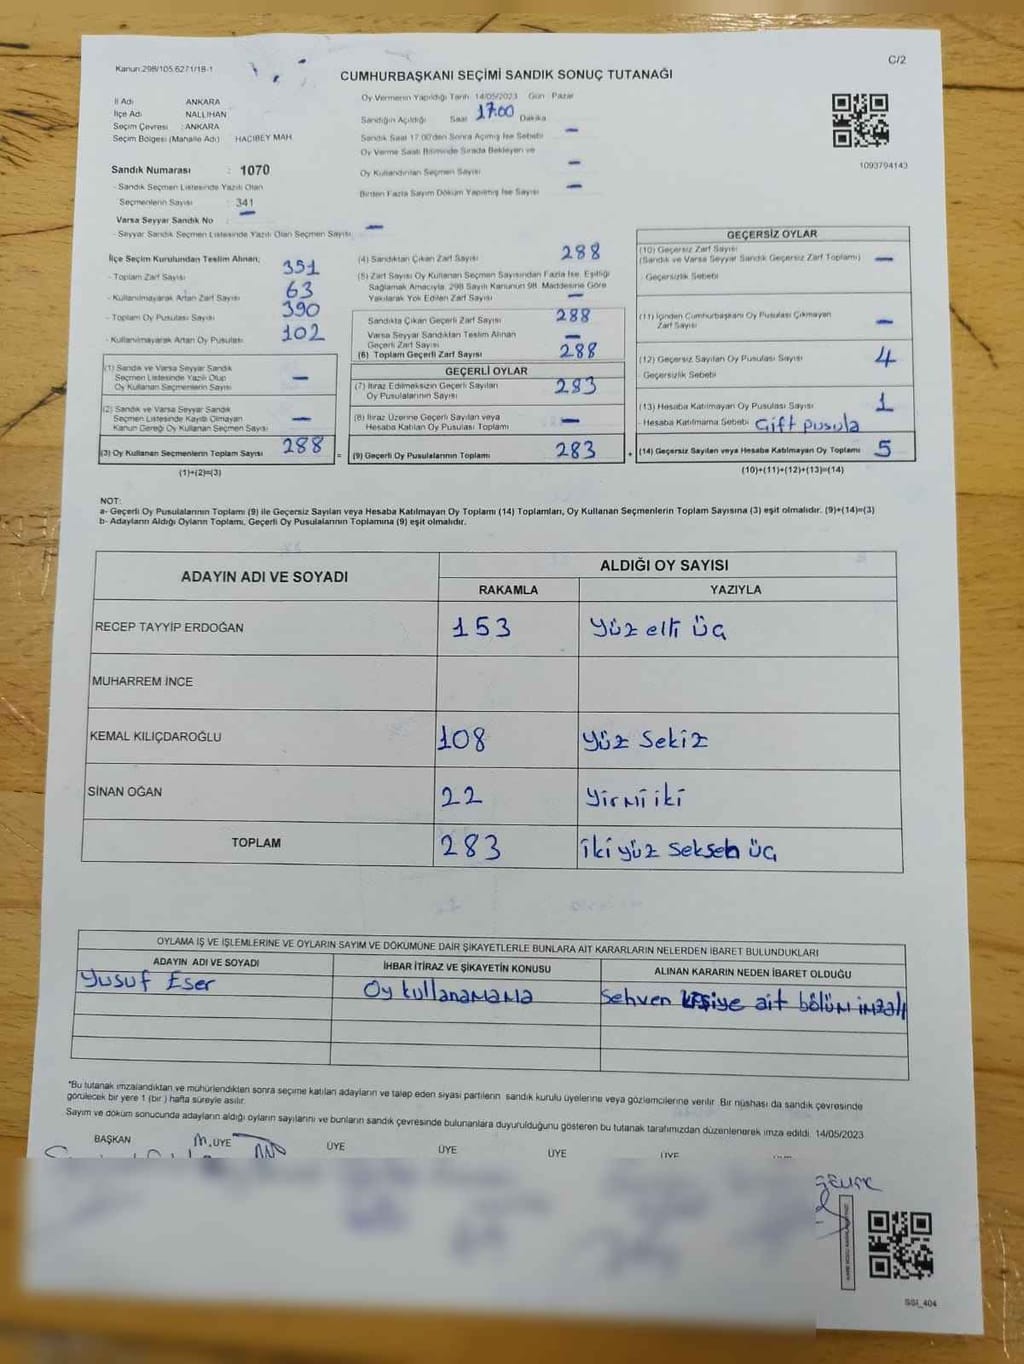 Kanun:298/105.6271/18-1
C/2
CUMHURBAŞKANI SEÇİMİ SANDIK SONUÇ TUTANAĞI
İl Adı : ANKARA
İlçe Adı : NALLIHAN
Seçim Çevresi : ANKARA
Seçim Bölgesi (Mahalle Adı) HACIBEY MAH.
Sandık Numarası : 1070
- Sandık Seçmen Listesinde Yazılı Olan
Seçmenlerin Sayısı : 341
Varsa Seyyar Sandık No : —
- Seyyar Sandık Seçmen Listesinde Yazılı Olan Seçmen Sayısı: —
Oy Vermenin Yapıldığı Tarih 14/05/2023 Gün Pazar
Sandığın Açıldığı Saat 17:00 Dakika
Sandık Saat 17.00'den Sonra Açılmış İse Sebebi —
Oy Verme Saati Bitiminde Sırada Bekleyen ve
Oy Kullandırılan Seçmen Sayısı —
Birden Fazla Sayım Döküm Yapılmış İse Sayısı —
1093794143
İlçe Seçim Kurulundan Teslim Alınan;
- Toplam Zarf Sayısı 351
- Kullanılmayarak Artan Zarf Sayısı 63
- Toplam Oy Pusulası Sayısı 390
- Kullanılmayarak Artan Oy Pusulası 102
(1) Sandık ve Varsa Seyyar Sandık
Seçmen Listesinde Yazılı Olup
Oy Kullanan Seçmenlerin Sayısı —
(2) Sandık ve Varsa Seyyar Sandık
Seçmen Listesinde Kayıtlı Olmayan
Kanun Gereği Oy Kullanan Seçmen Sayısı —
(3) Oy Kullanan Seçmenlerin Toplam Sayısı 288
(1)+(2)=(3)
(4) Sandıktan Çıkan Zarf Sayısı 288
(5) Zarf Sayısı Oy Kullanan Seçmen Sayısından Fazla İse, Eşitliği
Sağlamak Amacıyla, 298 Sayılı Kanunun 98. Maddesine Göre
Yakılarak Yok Edilen Zarf Sayısı —
Sandıkta Çıkan Geçerli Zarf Sayısı 288
Varsa Seyyar Sandıktan Teslim Alınan
Geçerli Zarf Sayısı —
(6) Toplam Geçerli Zarf Sayısı 288
GEÇERLİ OYLAR
(7) İtiraz Edilmeksizin Geçerli Sayılan
Oy Pusulalarının Sayısı 283
(8) İtiraz Üzerine Geçerli Sayılan veya
Hesaba Katılan Oy Pusulası Toplamı —
= (9) Geçerli Oy Pusulalarının Toplamı 283
GEÇERSİZ OYLAR
(10) Geçersiz Zarf Sayısı
(Sandık ve Varsa Seyyar Sandık Geçersiz Zarf Toplamı) —
- Geçersizlik Sebebi
(11) İçinden Cumhurbaşkanı Oy Pusulası Çıkmayan
Zarf Sayısı —
(12) Geçersiz Sayılan Oy Pusulası Sayısı 4
- Geçersizlik Sebebi
(13) Hesaba Katılmayan Oy Pusulası Sayısı 1
- Hesaba Katılmama Sebebi Çift pusula
+ (14) Geçersiz Sayılan veya Hesaba Katılmayan Oy Toplamı 5
(10)+(11)+(12)+(13)=(14)
NOT:
a- Geçerli Oy Pusulalarının Toplamı (9) ile Geçersiz Sayılan veya Hesaba Katılmayan Oy Toplamı (14) Toplamları, Oy Kullanan Seçmenlerin Toplam Sayısına (3) eşit olmalıdır. (9)+(14)=(3)
b- Adayların Aldığı Oyların Toplamı, Geçerli Oy Pusulalarının Toplamına (9) eşit olmalıdır.
ADAYIN ADI VE SOYADI ALDIĞI OY SAYISI
RAKAMLA YAZIYLA
RECEP TAYYİP ERDOĞAN 153 Yüz elli üç
MUHARREM İNCE
KEMAL KILIÇDAROĞLU 108 Yüz Sekiz
SİNAN OĞAN 22 Yirmi iki
TOPLAM 283 İki yüz Seksen üç
OYLAMA İŞ VE İŞLEMLERİNE VE OYLARIN SAYIM VE DÖKÜMÜNE DAİR ŞİKAYETLERLE BUNLARA AİT KARARLARIN NELERDEN İBARET BULUNDUKLARI
ADAYIN ADI VE SOYADI İHBAR İTİRAZ VE ŞİKAYETİN KONUSU ALINAN KARARIN NEDEN İBARET OLDUĞU
Yusuf Eser Oy kullanamama Sehven kişiye ait bölüm imzalı
*Bu tutanak imzalandıktan ve mühürlendikten sonra seçime katılan adayların ve talep eden siyasi partilerin sandık kurulu üyelerine veya gözlemcilerine verilir. Bir nüshası da sandık çevresinde
görülecek bir yere 1 (bir) hafta süreyle asılır.
Sayım ve döküm sonucunda adayların aldığı oyların sayılarını ve bunların sandık çevresinde bulunanlara duyurulduğunu gösteren bu tutanak tarafımızdan düzenlenerek imza edildi. 14/05/2023
BAŞKAN M. ÜYE ÜYE ÜYE ÜYE ÜYE
SSI_404